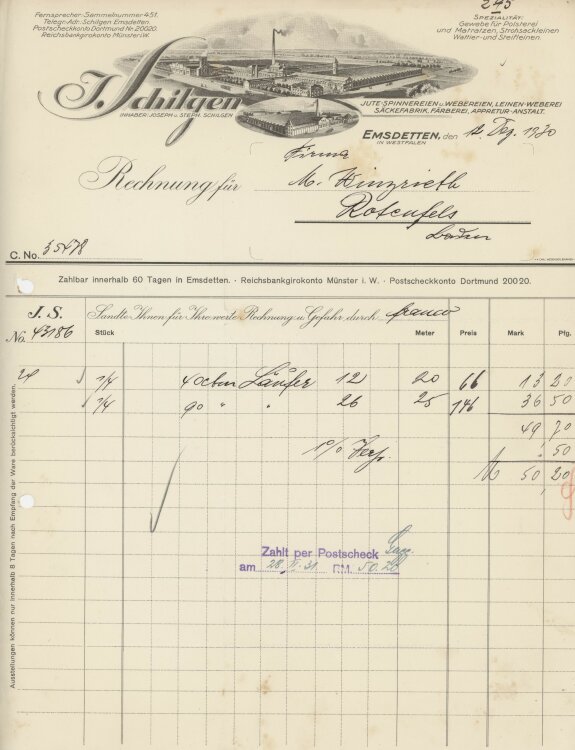 245
Fernsprecher: Sammelnummer 451.
Telegr.-Adr.: Schilgen Emsdetten.
Postscheckkonto Dortmund Nr. 20020.
Reichsbankgirokonto Münster i.W.
SPEZIALITÄT:
Gewebe für Polsterei
und Matratzen, Strohsackleinen
Wattier- und Steifleinen.
J. Schilgen
INHABER: JOSEPH U. STEPH. SCHILGEN
JUTE-SPINNEREIEN U. WEBEREIEN, LEINEN-WEBEREI
SÄCKEFABRIK, FÄRBEREI, APPRETUR-ANSTALT.
EMSDETTEN, den 12. Dez. 1930
IN WESTFALEN
Rechnung für
Firma
M.
Rotenfels
Baden
C. No. 35478
Zahlbar innerhalb 60 Tagen in Emsdetten. · Reichsbankgirokonto Münster i. W. · Postscheckkonto Dortmund 20020.
J. S. Sandte Ihnen für Ihre werte Rechnung u. Gefahr durch franco
No. 43186
Stück Meter Preis Mark Pfg.
1/4 40 cbm Läufer 12 20 66 13 20
1/4 90 " " 26 25 146 36 50
49 70
1% Verp. 50
M 50 20
Zahlt per Postscheck
am 28.II.31. RM. 50.20
Ausstellungen können nur innerhalb 8 Tagen nach Empfang der Ware berücksichtigt werden.